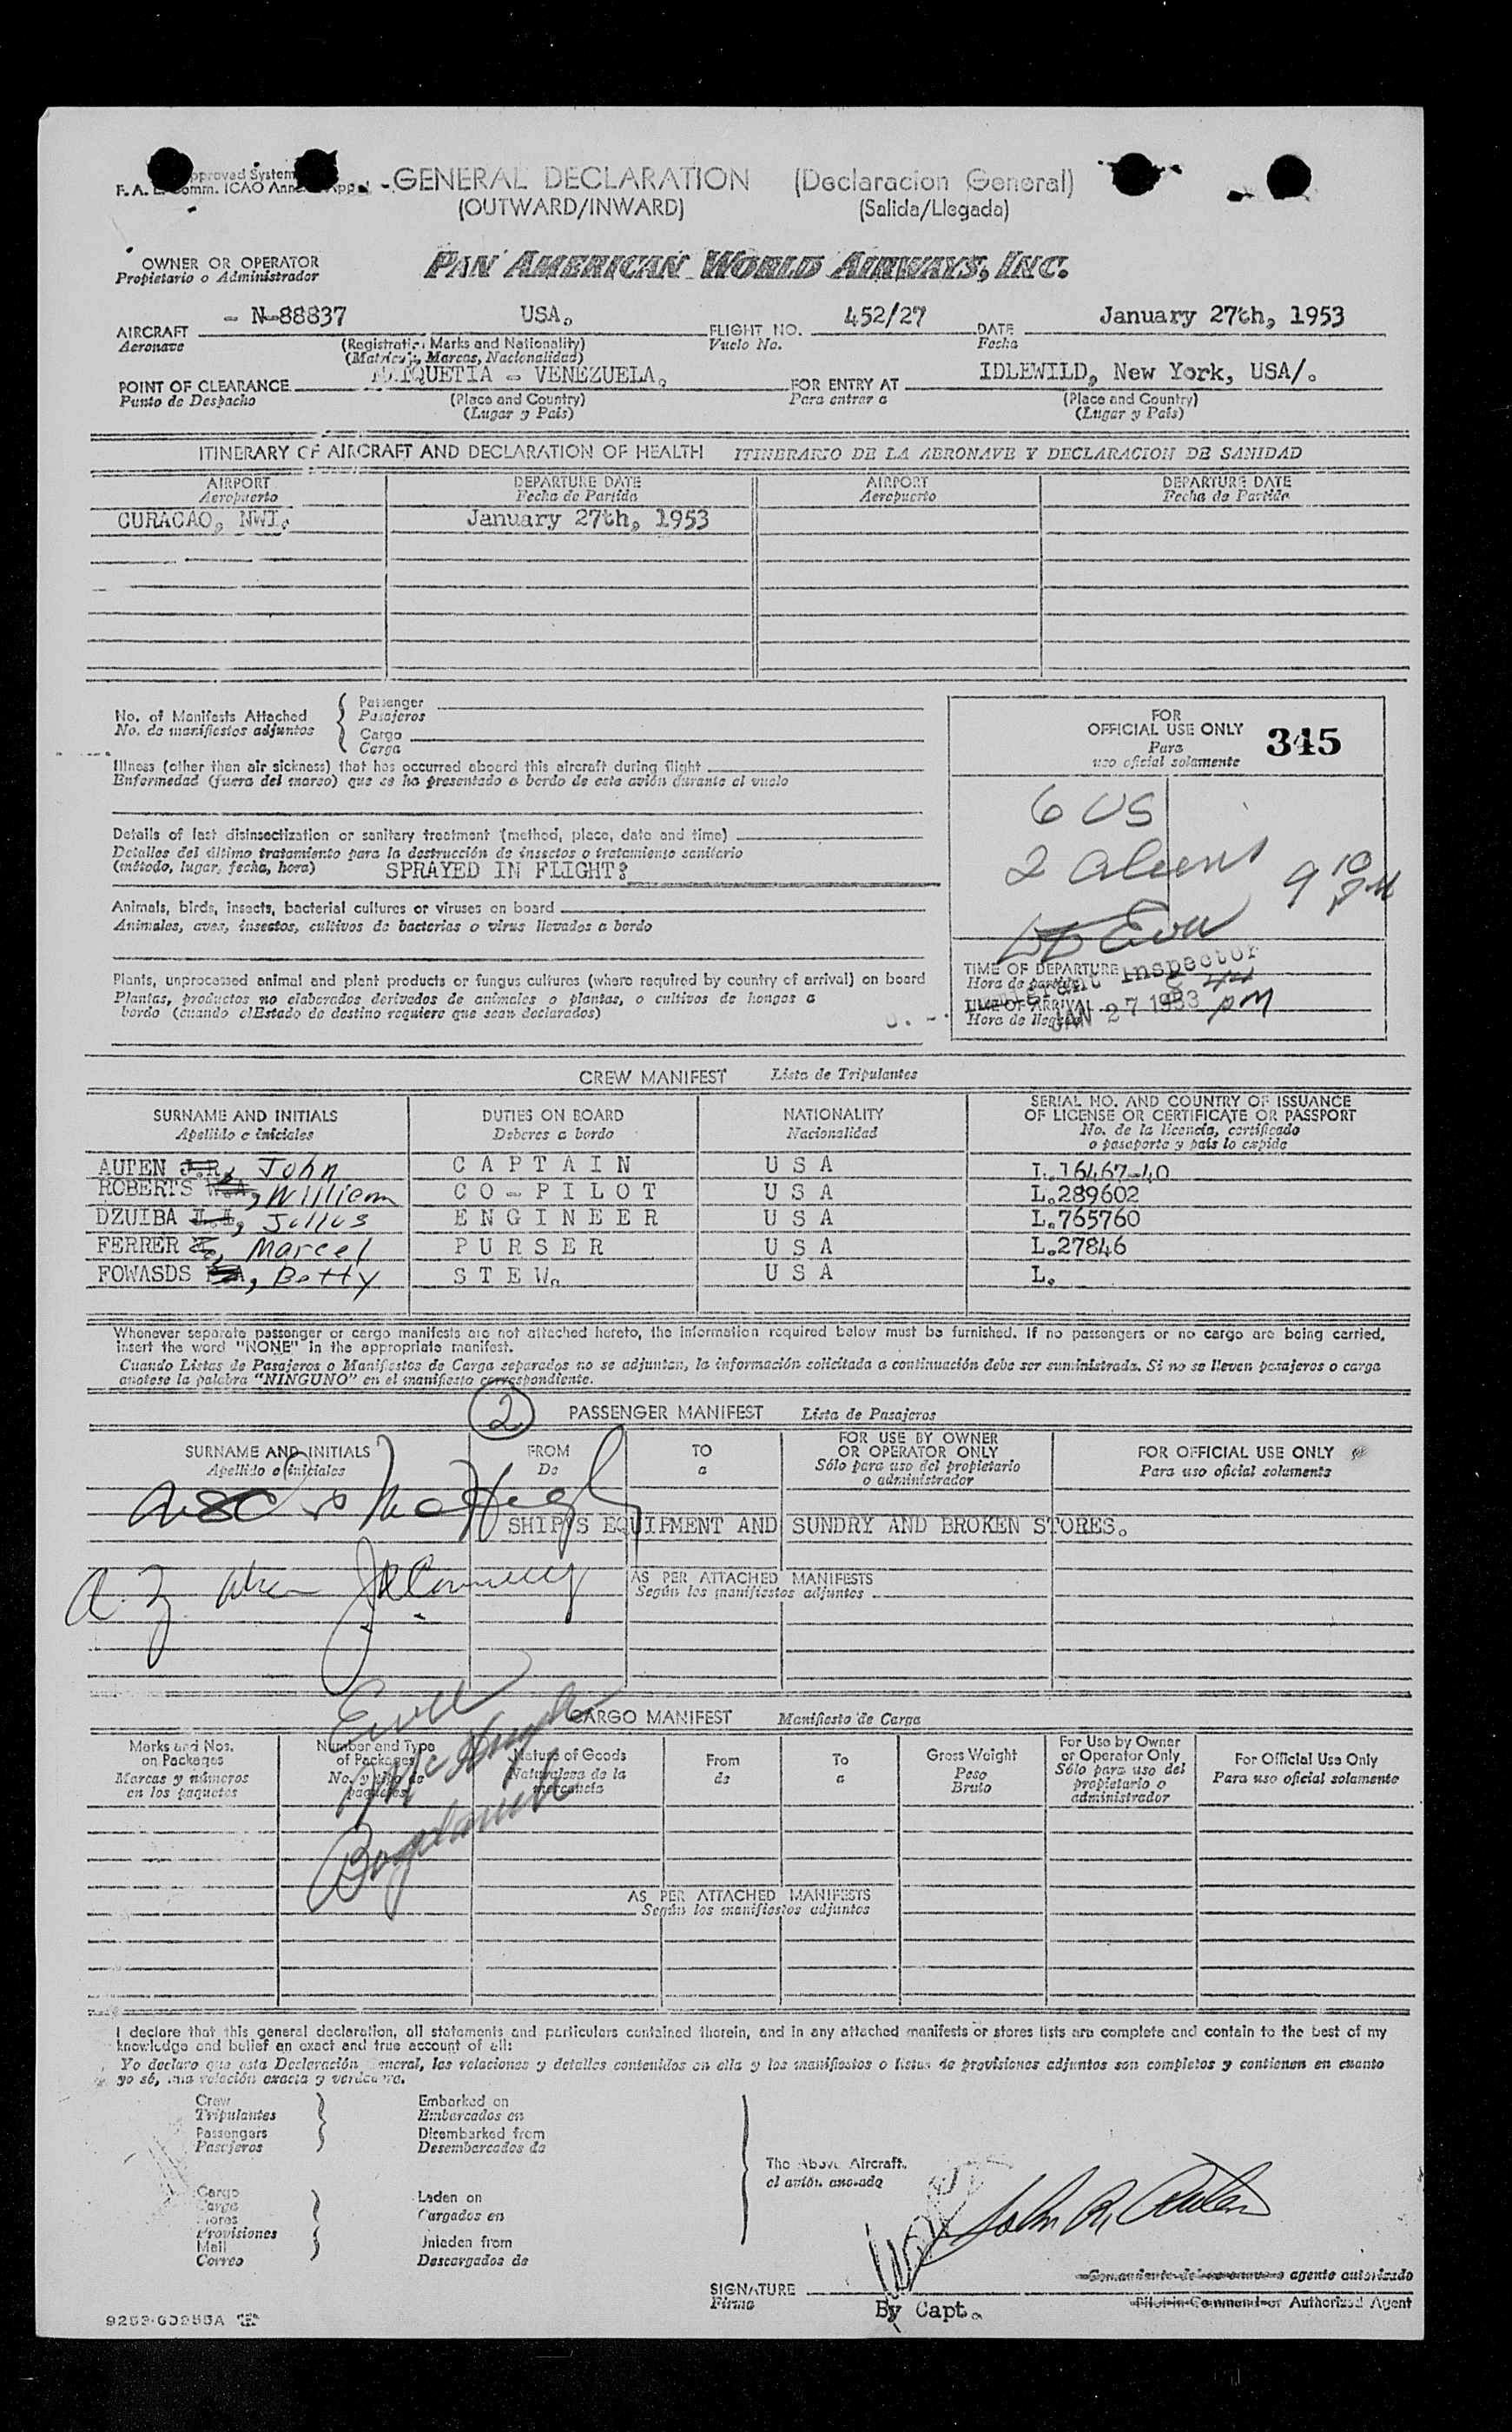 GENERAL DECLARATION (Declaracion General)
F. A. Comm. ICAO
(OUTWARD/INWARD) (Salida/Llegada)
OWNER OR OPERATOR
Propietario o Administrador
PAN AMERICAN WORLD AIRWAYS, INC.
AIRCRAFT - N-88837 USA. FLIGHT NO. 452/27 DATE January 27th, 1953
Aeronave (Registration Marks and Nationality) Vuelo No. Fecha
(Matricula, Marcas, Nacionalidad)
POINT OF CLEARANCE MAIQUETIA - VENEZUELA. FOR ENTRY AT IDLEWILD, New York, USA/.
Punto de Despacho (Place and Country) Para entrar a (Place and Country)
(Lugar y Pais) (Lugar y Pais)
ITINERARY OF AIRCRAFT AND DECLARATION OF HEALTH ITINERARIO DE LA AERONAVE Y DECLARACION DE SANIDAD
AIRPORT DEPARTURE DATE AIRPORT DEPARTURE DATE
Aeropuerto Fecha de Partida Aeropuerto Fecha de Partida
CURACAO, NWI. January 27th, 1953
No. of Manifests Attached
No. de manifiestos adjuntos
Passenger
Pasajeros
Cargo
Carga
Illness (other than air sickness) that has occurred aboard this aircraft during flight
Enfermedad (fuera del mareo) que se ha presentado a bordo de este avión durante el vuelo
Details of last disinsectization or sanitary treatment (method, place, date and time)
Detalles del último tratamiento para la destrucción de insectos o tratamiento sanitario
(método, lugar, fecha, hora) SPRAYED IN FLIGHT:
Animals, birds, insects, bacterial cultures or viruses on board
Animales, aves, insectos, cultivos de bacterias o virus llevados a bordo
Plants, unprocessed animal and plant products or fungus cultures (where required by country of arrival) on board
Plantas, productos no elaborados derivados de animales o plantas, o cultivos de hongos a
bordo (cuando el Estado de destino requiere que sean declarados)
FOR
OFFICIAL USE ONLY 345
Para
uso oficial solamente
6 US
2 aliens
9 10 PM
TIME OF DEPARTURE
Hora de partida
Inspector
TIME OF ARRIVAL
Hora de llegada
JAN 27 1953
PM
CREW MANIFEST Lista de Tripulantes
SURNAME AND INITIALS DUTIES ON BOARD NATIONALITY SERIAL NO. AND COUNTRY OF ISSUANCE
OF LICENSE OR CERTIFICATE OR PASSPORT
Apellido e iniciales Deberes a bordo Nacionalidad No. de la licencia, certificado
o pasaporte y pais lo expide
AUTEN J.R., John CAPTAIN USA L.16467-40
ROBERTS W.A, William CO-PILOT USA L.289602
DZUIBA, Julius ENGINEER USA L.765760
FERRER, Marcel PURSER USA L.27846
FOWASDS, Betty STEW. USA L.
Whenever separate passenger or cargo manifests are not attached hereto, the information required below must be furnished. If no passengers or no cargo are being carried,
insert the word "NONE" in the appropriate manifest.
Cuando Listas de Pasajeros o Manifiestos de Carga separados no se adjuntan, la información solicitada a continuación debe ser suministrada. Si no se lleven pasajeros o carga
anotese la palabra "NINGUNO" en el manifiesto correspondiente.
2 PASSENGER MANIFEST Lista de Pasajeros
SURNAME AND INITIALS FROM TO FOR USE BY OWNER
OR OPERATOR ONLY FOR OFFICIAL USE ONLY
Apellido e iniciales De a Sólo para uso del propietario
o administrador Para uso oficial solamente
SHIP'S EQUIPMENT AND SUNDRY AND BROKEN STORES.
AS PER ATTACHED MANIFESTS
Según los manifiestos adjuntos
McHugh
Bogdanich
CARGO MANIFEST Manifiesto de Carga
Marks and Nos.
on Packages
Marcas y números
en los paquetes
Number and Type
of Packages
No. y tipo de
paquetes
Nature of Goods
Naturaleza de la
mercancia
From
de
To
a
Gross Weight
Peso
Bruto
For Use by Owner
or Operator Only
Sólo para uso del
propietario o
administrador
For Official Use Only
Para uso oficial solamente
AS PER ATTACHED MANIFESTS
Según los manifiestos adjuntos
I declare that this general declaration, all statements and particulars contained therein, and in any attached manifests or stores lists are complete and contain to the best of my
knowledge and belief an exact and true account of all:
Yo declaro que esta Declaración General, las relaciones y detalles contenidos en ella y los manifiestos o listas de provisiones adjuntos son completos y contienen en cuanto
yo sé, una relación exacta y verdadera.
Crew
Tripulantes
Passengers
Pasajeros
Embarked on
Embarcados en
Disembarked from
Desembarcados de
Cargo
Carga
Stores
Provisiones
Mail
Correo
Laden on
Cargados en
Unladen from
Descargados de
The Above Aircraft.
el avión anotado
John R. Auten
SIGNATURE
Firma
By Capt.
Comandante de aeronave o agente autorizado
Pilot-in-Command or Authorized Agent